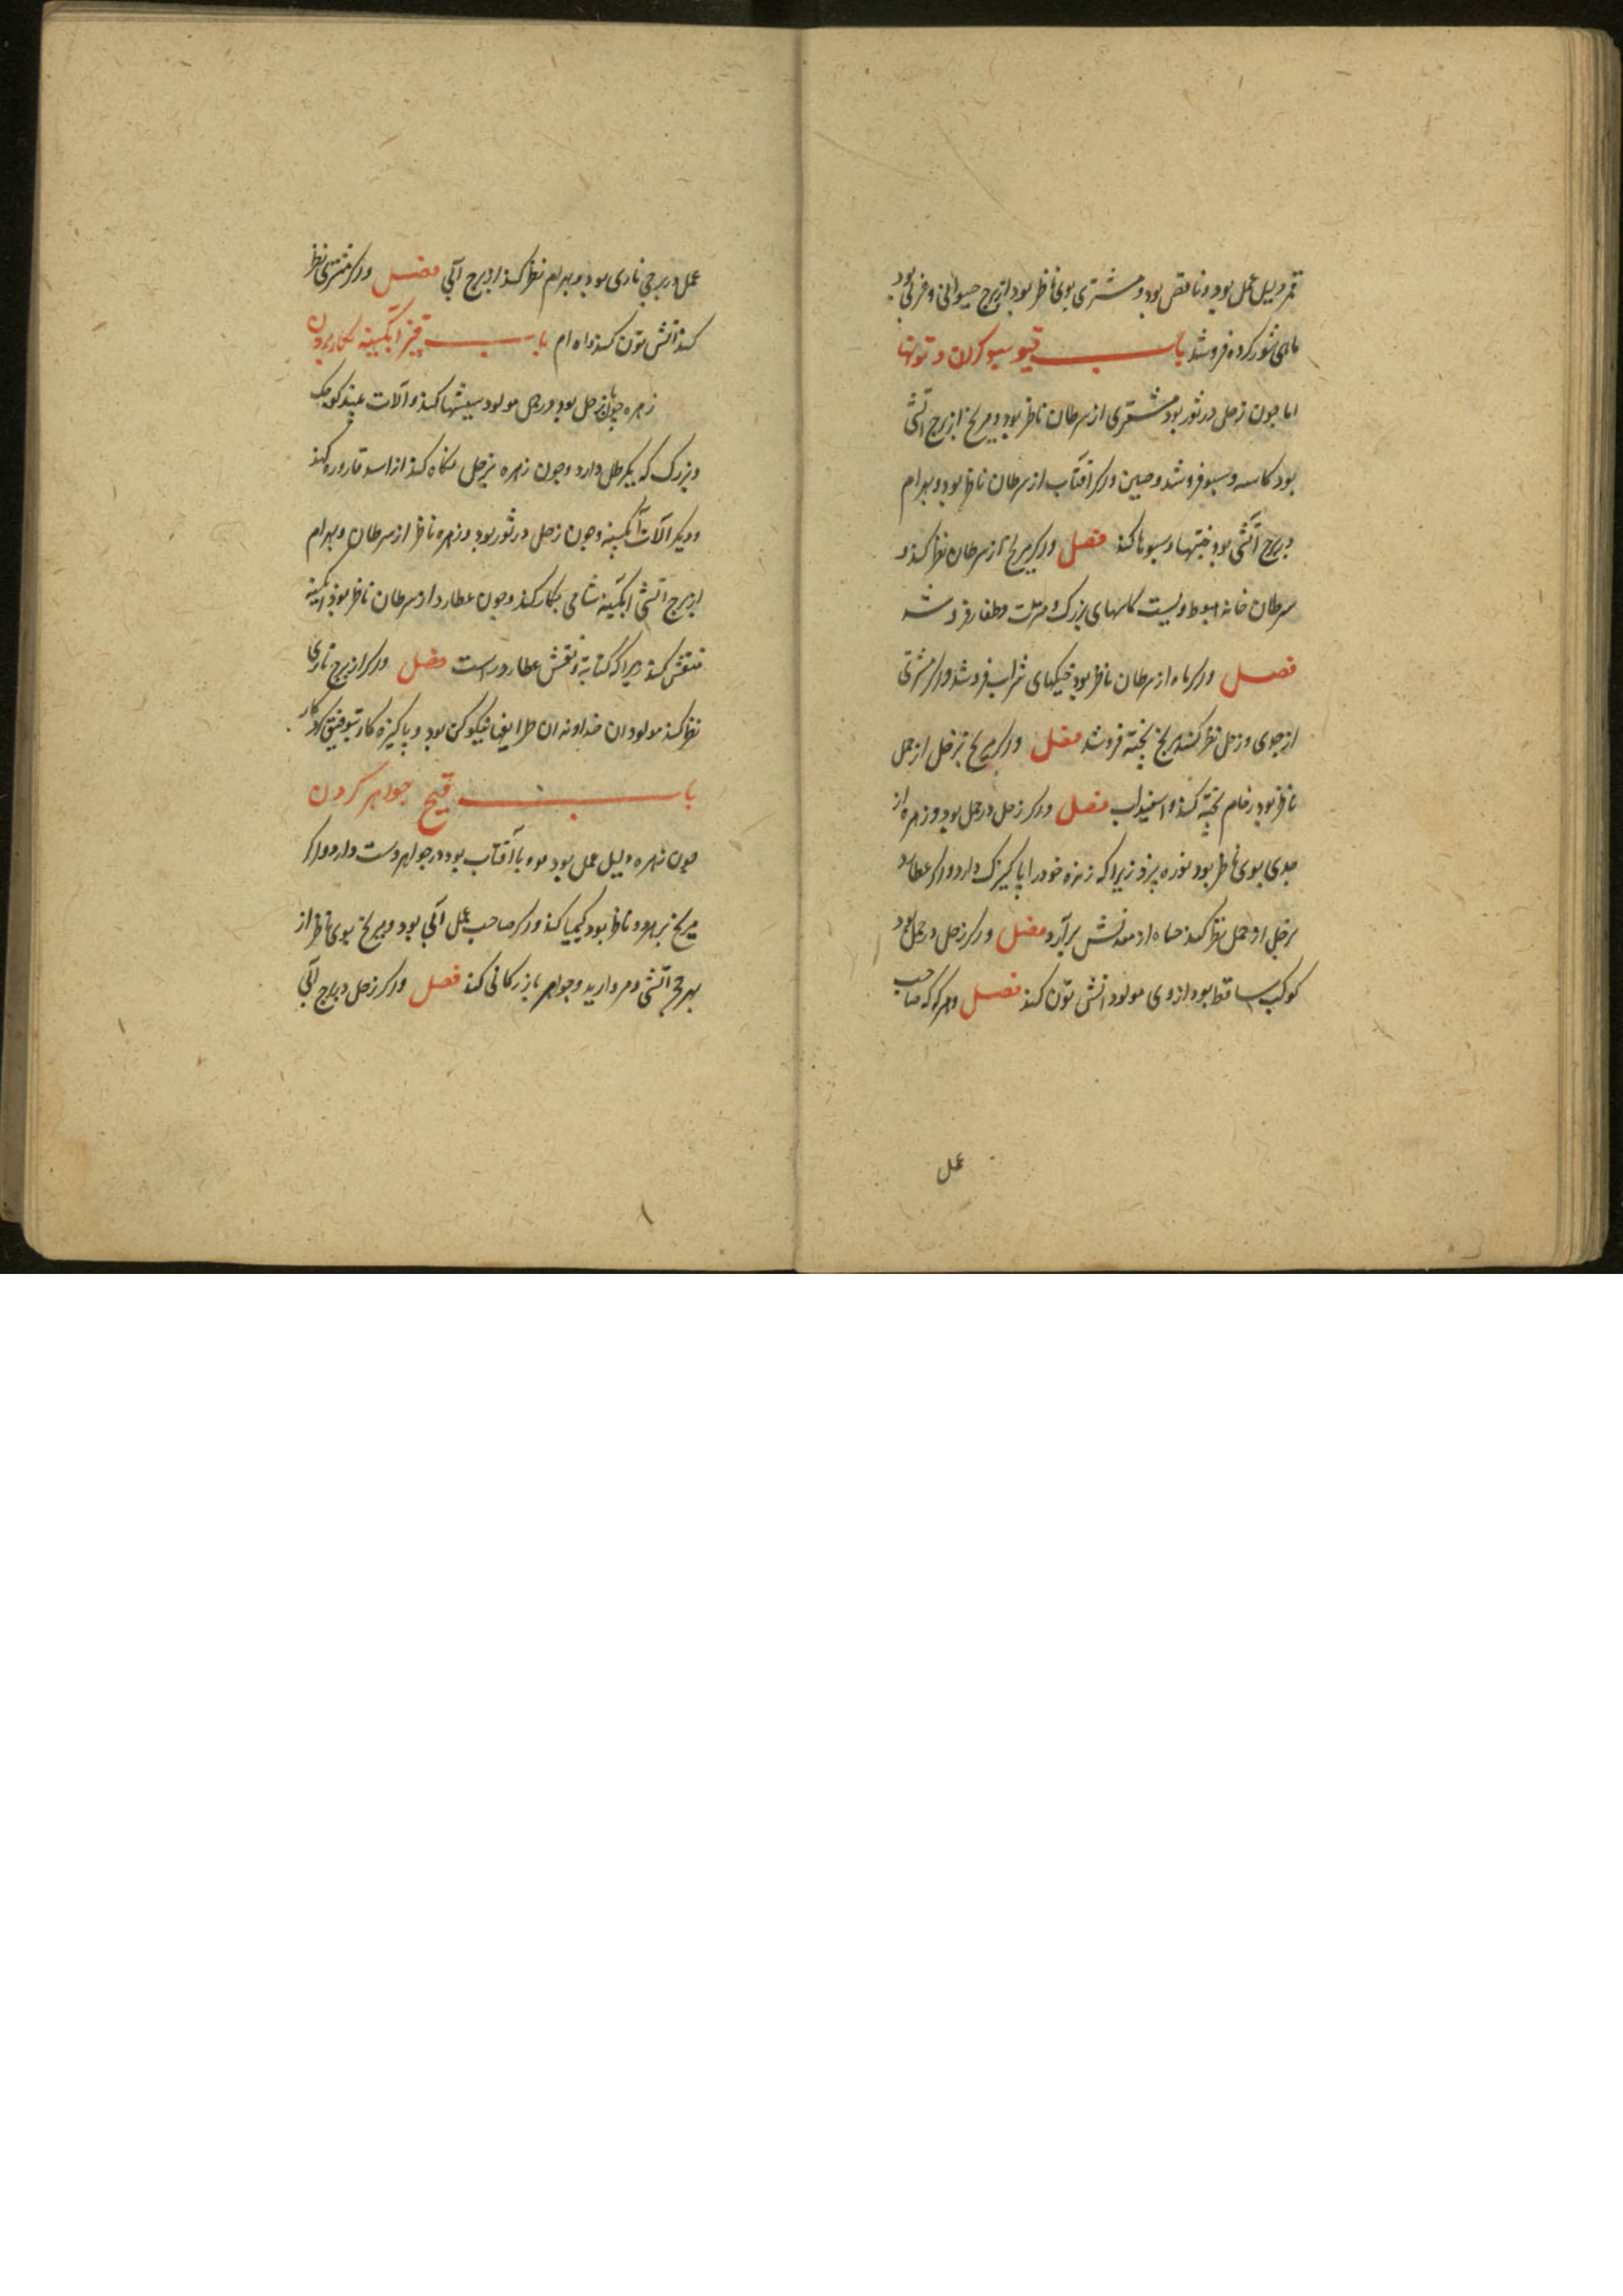 قمر دلیل عمل بود و ناقص بود و مشتری بوی ناظر بود از برج حیوانی و قمر بود
ماهی شور کرده فروشد باب سبو کردن و تونها
اما جون زحل در ثور بود مشتری از سرطان ناظر بود و مریخ از برج آتشی
بود کاسه و سبو فروشد و جنین واکر آفتاب از سرطان ناظر بود و بهرام
ببرج آتشی بود خنبها و سبوها کند فصل واکر مریخ از سرطان نظر کند و
سرطان خانه هبوط ویست کاسهای بزرک و فروشد
فصل واکر ماه از سرطان ناظر بود خیکهای شراب فروشد واکر مشتری
از جدی و زحل نظر کند پخته فروشد فصل واکر مریخ بزحل از حمل
ناظر بود رخام پخته کند و اسفیداب فصل واکر زحل در حمل بود و زهره از
جدی بوی ناظر بود نوره پزد زیرا که زهره خود را پاکیزک دارد واکر عطارد
بزحل از حمل نظر کند از معدنش برآرد فصل واکر زحل در حمل بود
کوکب ساقط بود از وی مولود آتش تون کند فصل و هرکه که صاحب
عمل
عمل در برجی ناری بود و بهرام نظر کند از برج آبی فصل واکر مشتری نظر
کند آتش تون کند باب آبکینه بکار بردن
زهره جون زحل بود در حمل مولود شیشها کند و آلات کوجک
و بزرک که یکرطل دارد وجون زهره بزحل نکاه کند از اسد قاروره کند
و دیکر آلات آبکینه وجون زحل در ثور بود و زهره ناظر از سرطان و بهرام
از برج آتشی آبکینه شامی بکار کند وجون عطارد از سرطان ناظر بود آبکینه
منقش کند زیرا که کتابة و نقش عطارد راست فصل واکر از برج ناری
نظر کند مولود آن خداوند آن طرایف نیکوکن بود و پاکیزه کار بتوفیق کردکار
باب جواهر کردن
جون زهره دلیل عمل بود و با آفتاب بود در جواهر دست دارد واکر
مریخ بهر دو ناظر بود کیمیا کند واکر صاحب عمل آبی بود و مریخ بوی ناظر از
برج آتشی مروارید و جواهر بازرکانی کند فصل واکر زحل در برج آبی